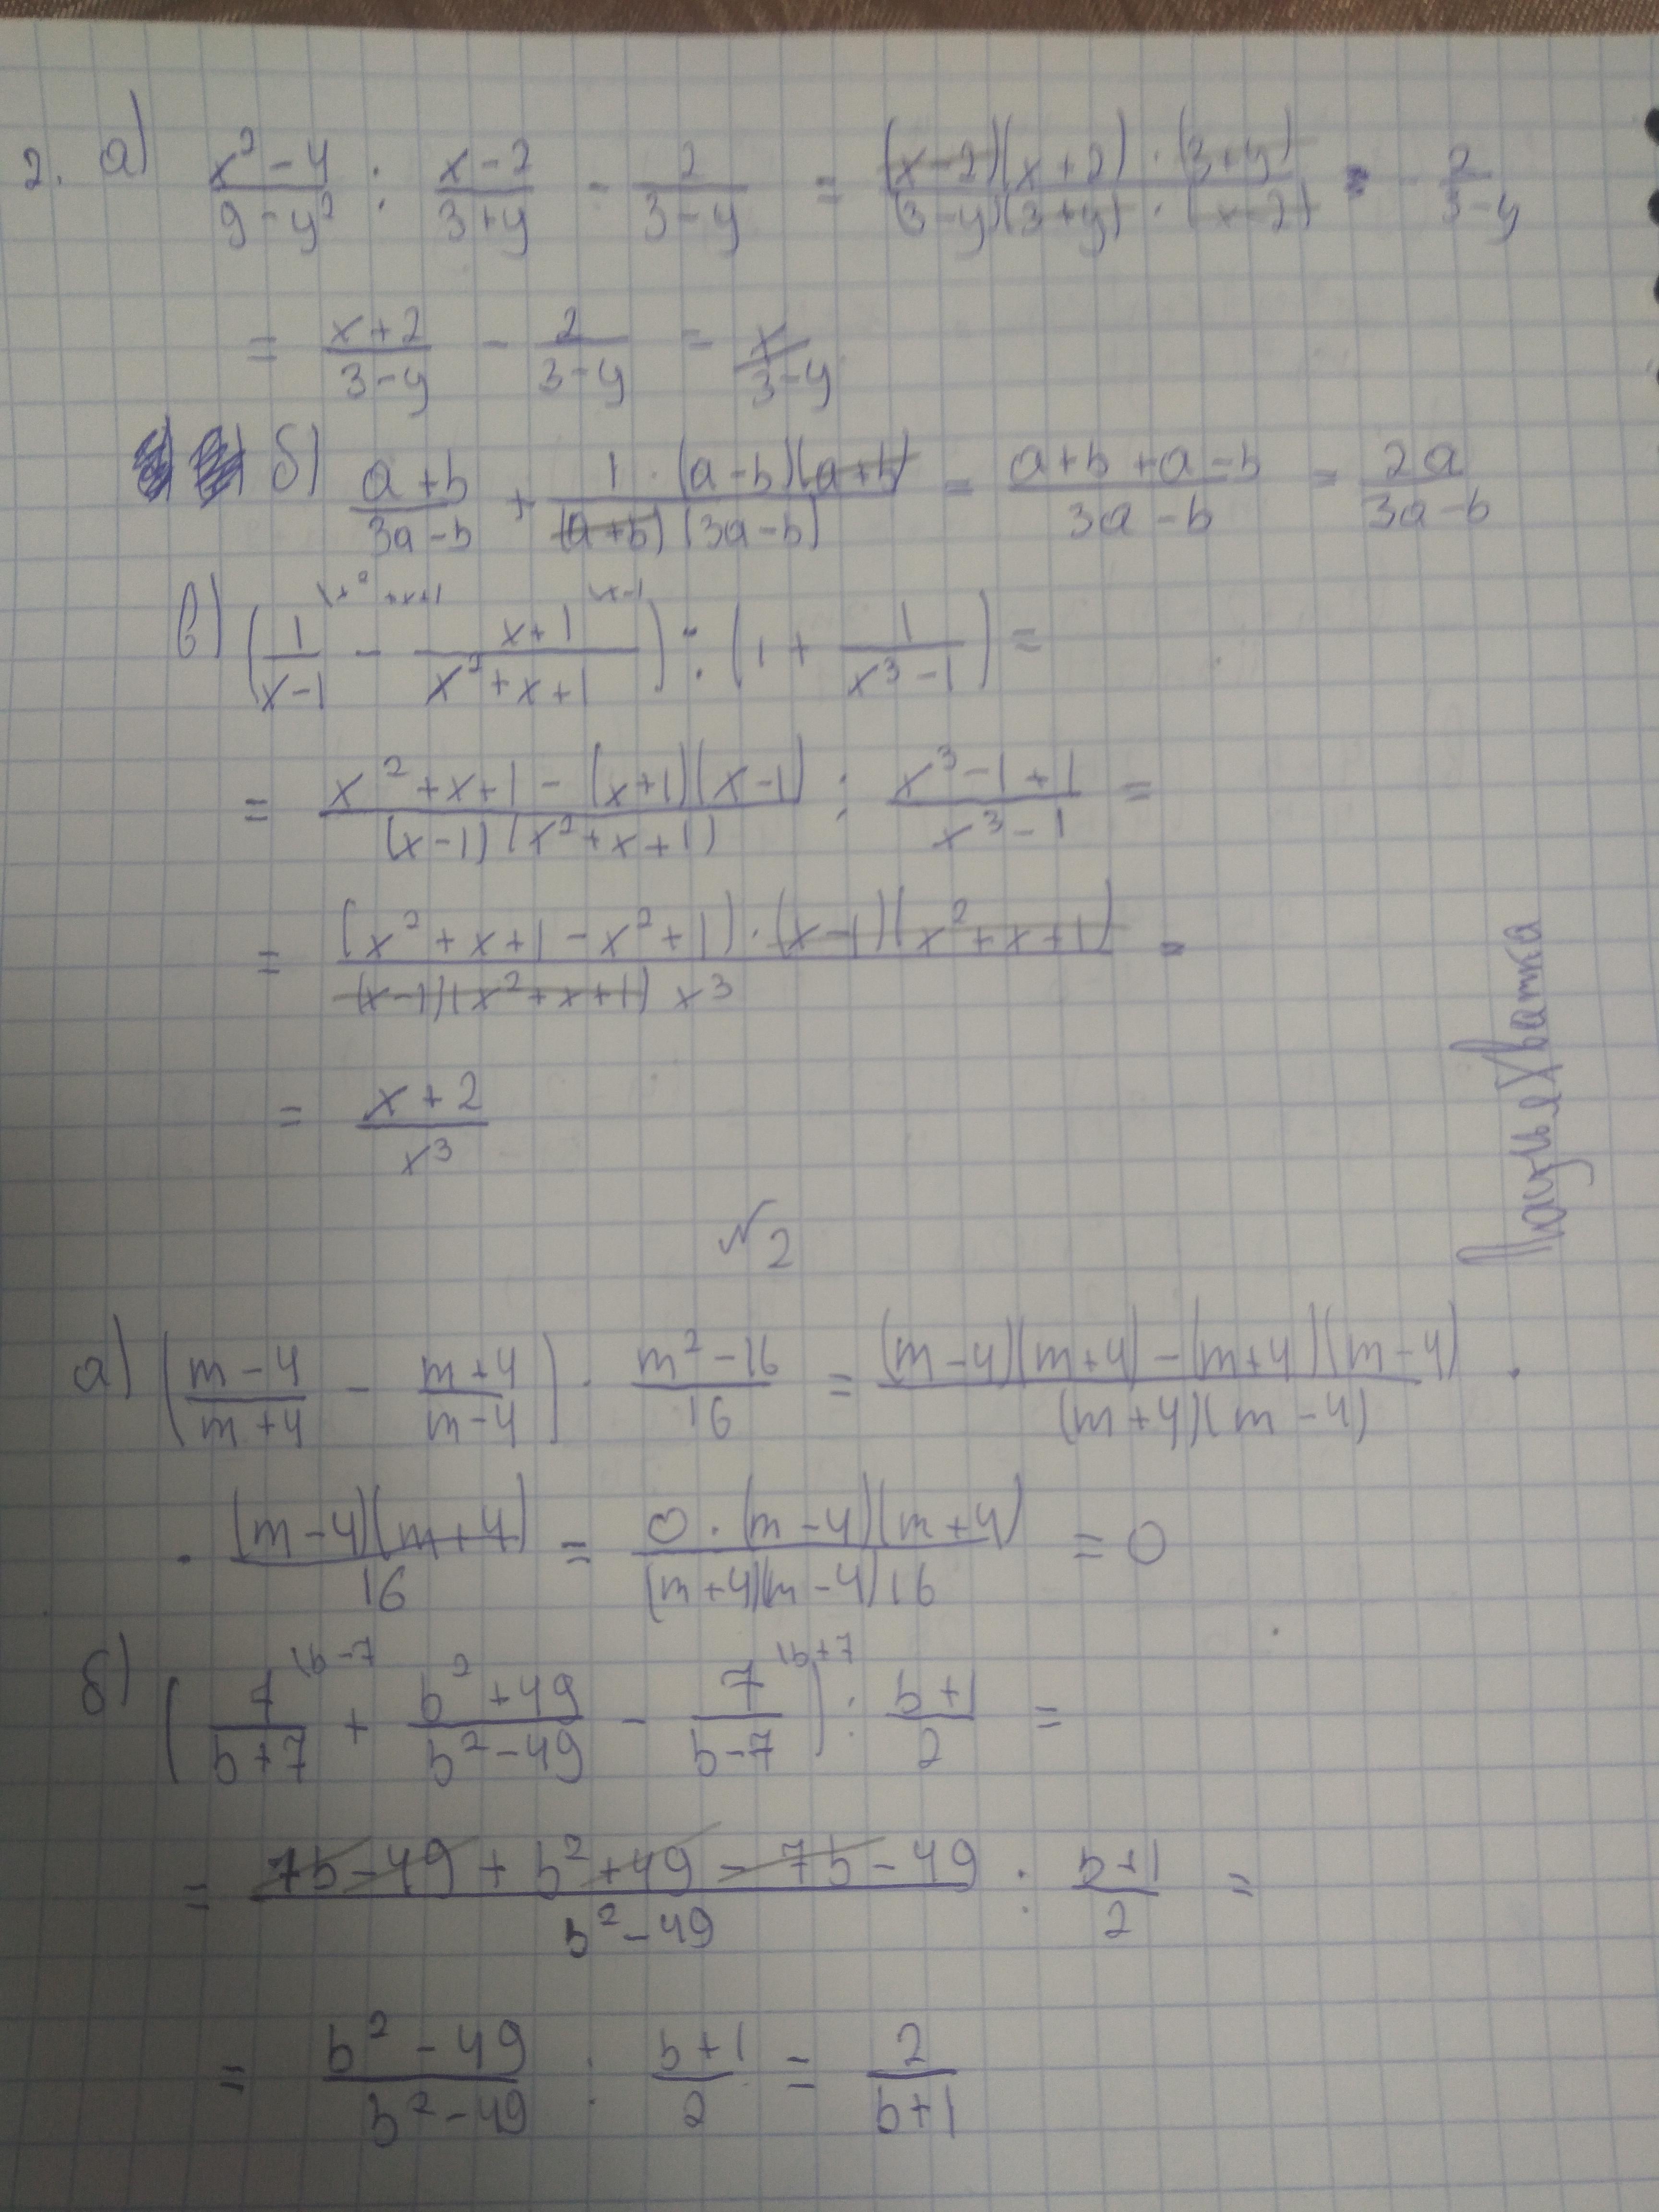 2. а) (x² - 4)/(9 - y²) : (x - 2)/(3 + y) - 2/(3 - y) = ((x - 2)(x + 2) · (3 + y))/((3 - y)(3 + y) · (x - 2)) - 2/(3 - y)
= (x + 2)/(3 - y) - 2/(3 - y) = x/(3 - y)
б) (a + b)/(3a - b) + (1 · (a - b)(a + b))/((a + b)(3a - b)) = (a + b + a - b)/(3a - b) = 2a/(3a - b)
в) (1/(x - 1) - (x + 1)/(x² + x + 1)) : (1 + 1/(x³ - 1)) =
= (x² + x + 1 - (x + 1)(x - 1))/((x - 1)(x² + x + 1)) : (x³ - 1 + 1)/(x³ - 1) =
= ((x² + x + 1 - x² + 1) · (x - 1)(x² + x + 1))/((x - 1)(x² + x + 1) x³) =
= (x + 2)/x³
№2
а) ((m - 4)/(m + 4) - (m + 4)/(m - 4)) · (m² - 16)/16 = ((m - 4)(m + 4) - (m + 4)(m - 4))/((m + 4)(m - 4)) ·
· ((m - 4)(m + 4))/16 = (0 · (m - 4)(m + 4))/((m + 4)(m - 4)16) = 0
б) (7/(b + 7) + (b² + 49)/(b² - 49) - 7/(b - 7)) : (b + 1)/2 =
= (7b - 49 + b² + 49 - 7b - 49)/(b² - 49) : (b + 1)/2 =
= (b² - 49)/(b² - 49) : (b + 1)/2 = 2/(b + 1)